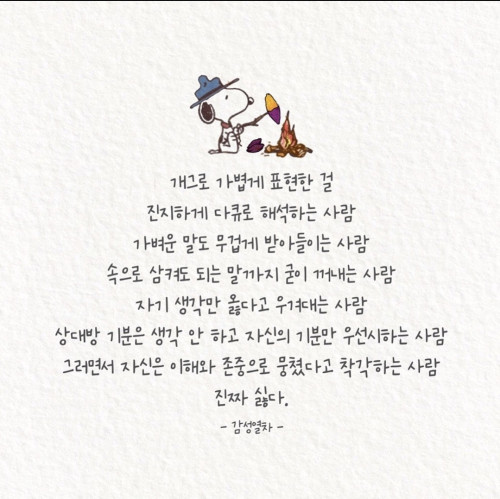 개그로 가볍게 표현한 걸
진지하게 다큐로 해석하는 사람
가벼운 말도 무겁게 받아들이는 사람
속으로 삼켜도 되는 말까지 굳이 꺼내는 사람
자기 생각만 옳다고 우겨대는 사람
상대방 기분은 생각 안 하고 자신의 기분만 우선시하는 사람
그러면서 자신은 이해와 존중으로 뭉쳤다고 착각하는 사람
진짜 싫다.
- 감성열차 -